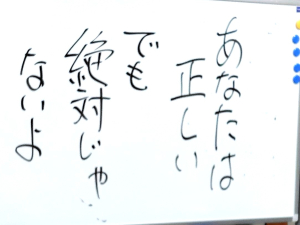 あなたは
正しい
でも
絶対じゃ
ないよ